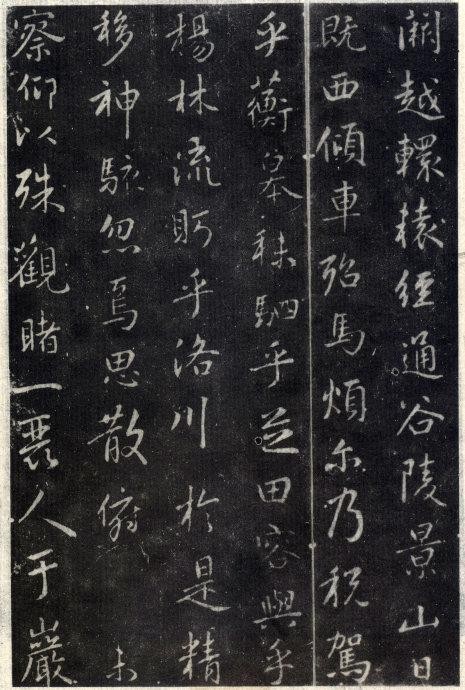 闕越轘轅經通谷陵景山日
既西傾車殆馬煩尔乃税駕
乎蘅皋秣駟乎芝田容與乎
楊林流眄乎洛川於是精
移神駭忽焉思散俯 未
察仰以殊觀睹一麗人于巖